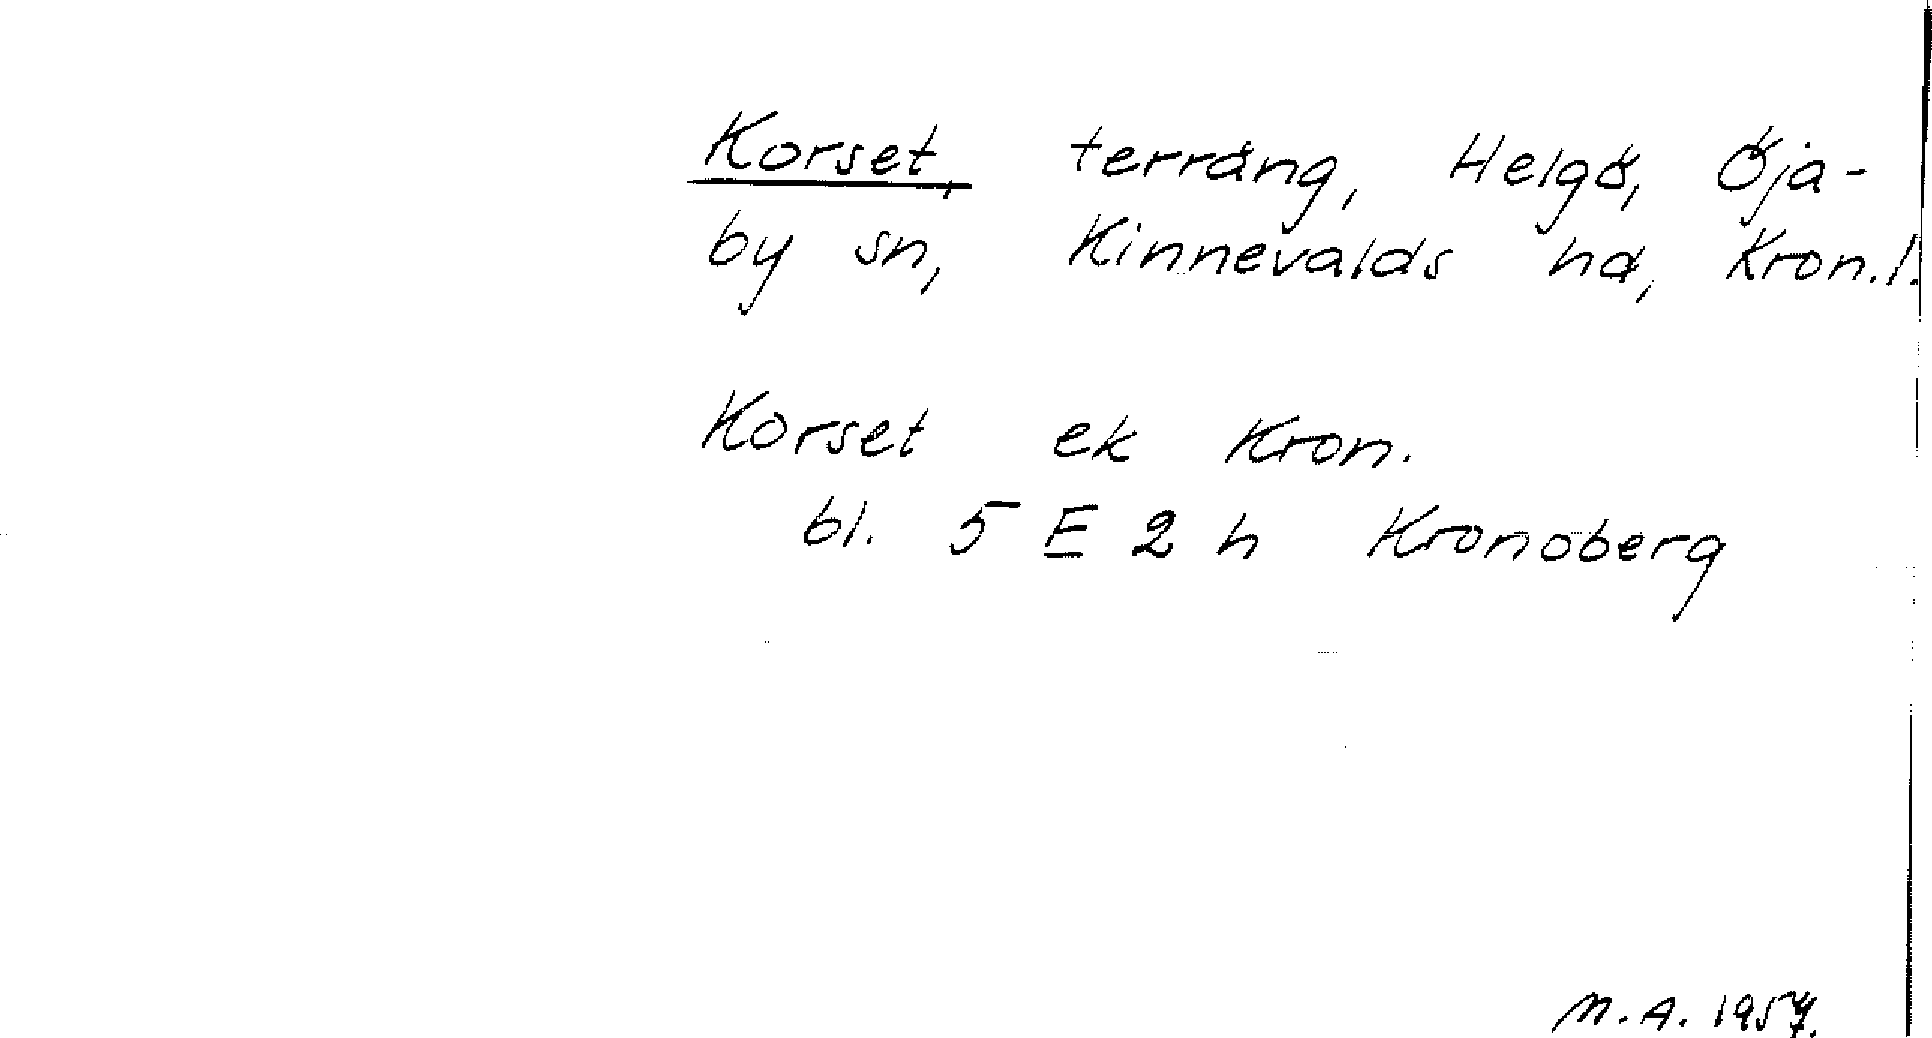 Korset, terräng, Helgö, Öja-
by sn, Kinnevalds hd, Kron.l.
Korset ek Kron.
bl. 5 E 2 h Kronoberg
M.A. 1957.